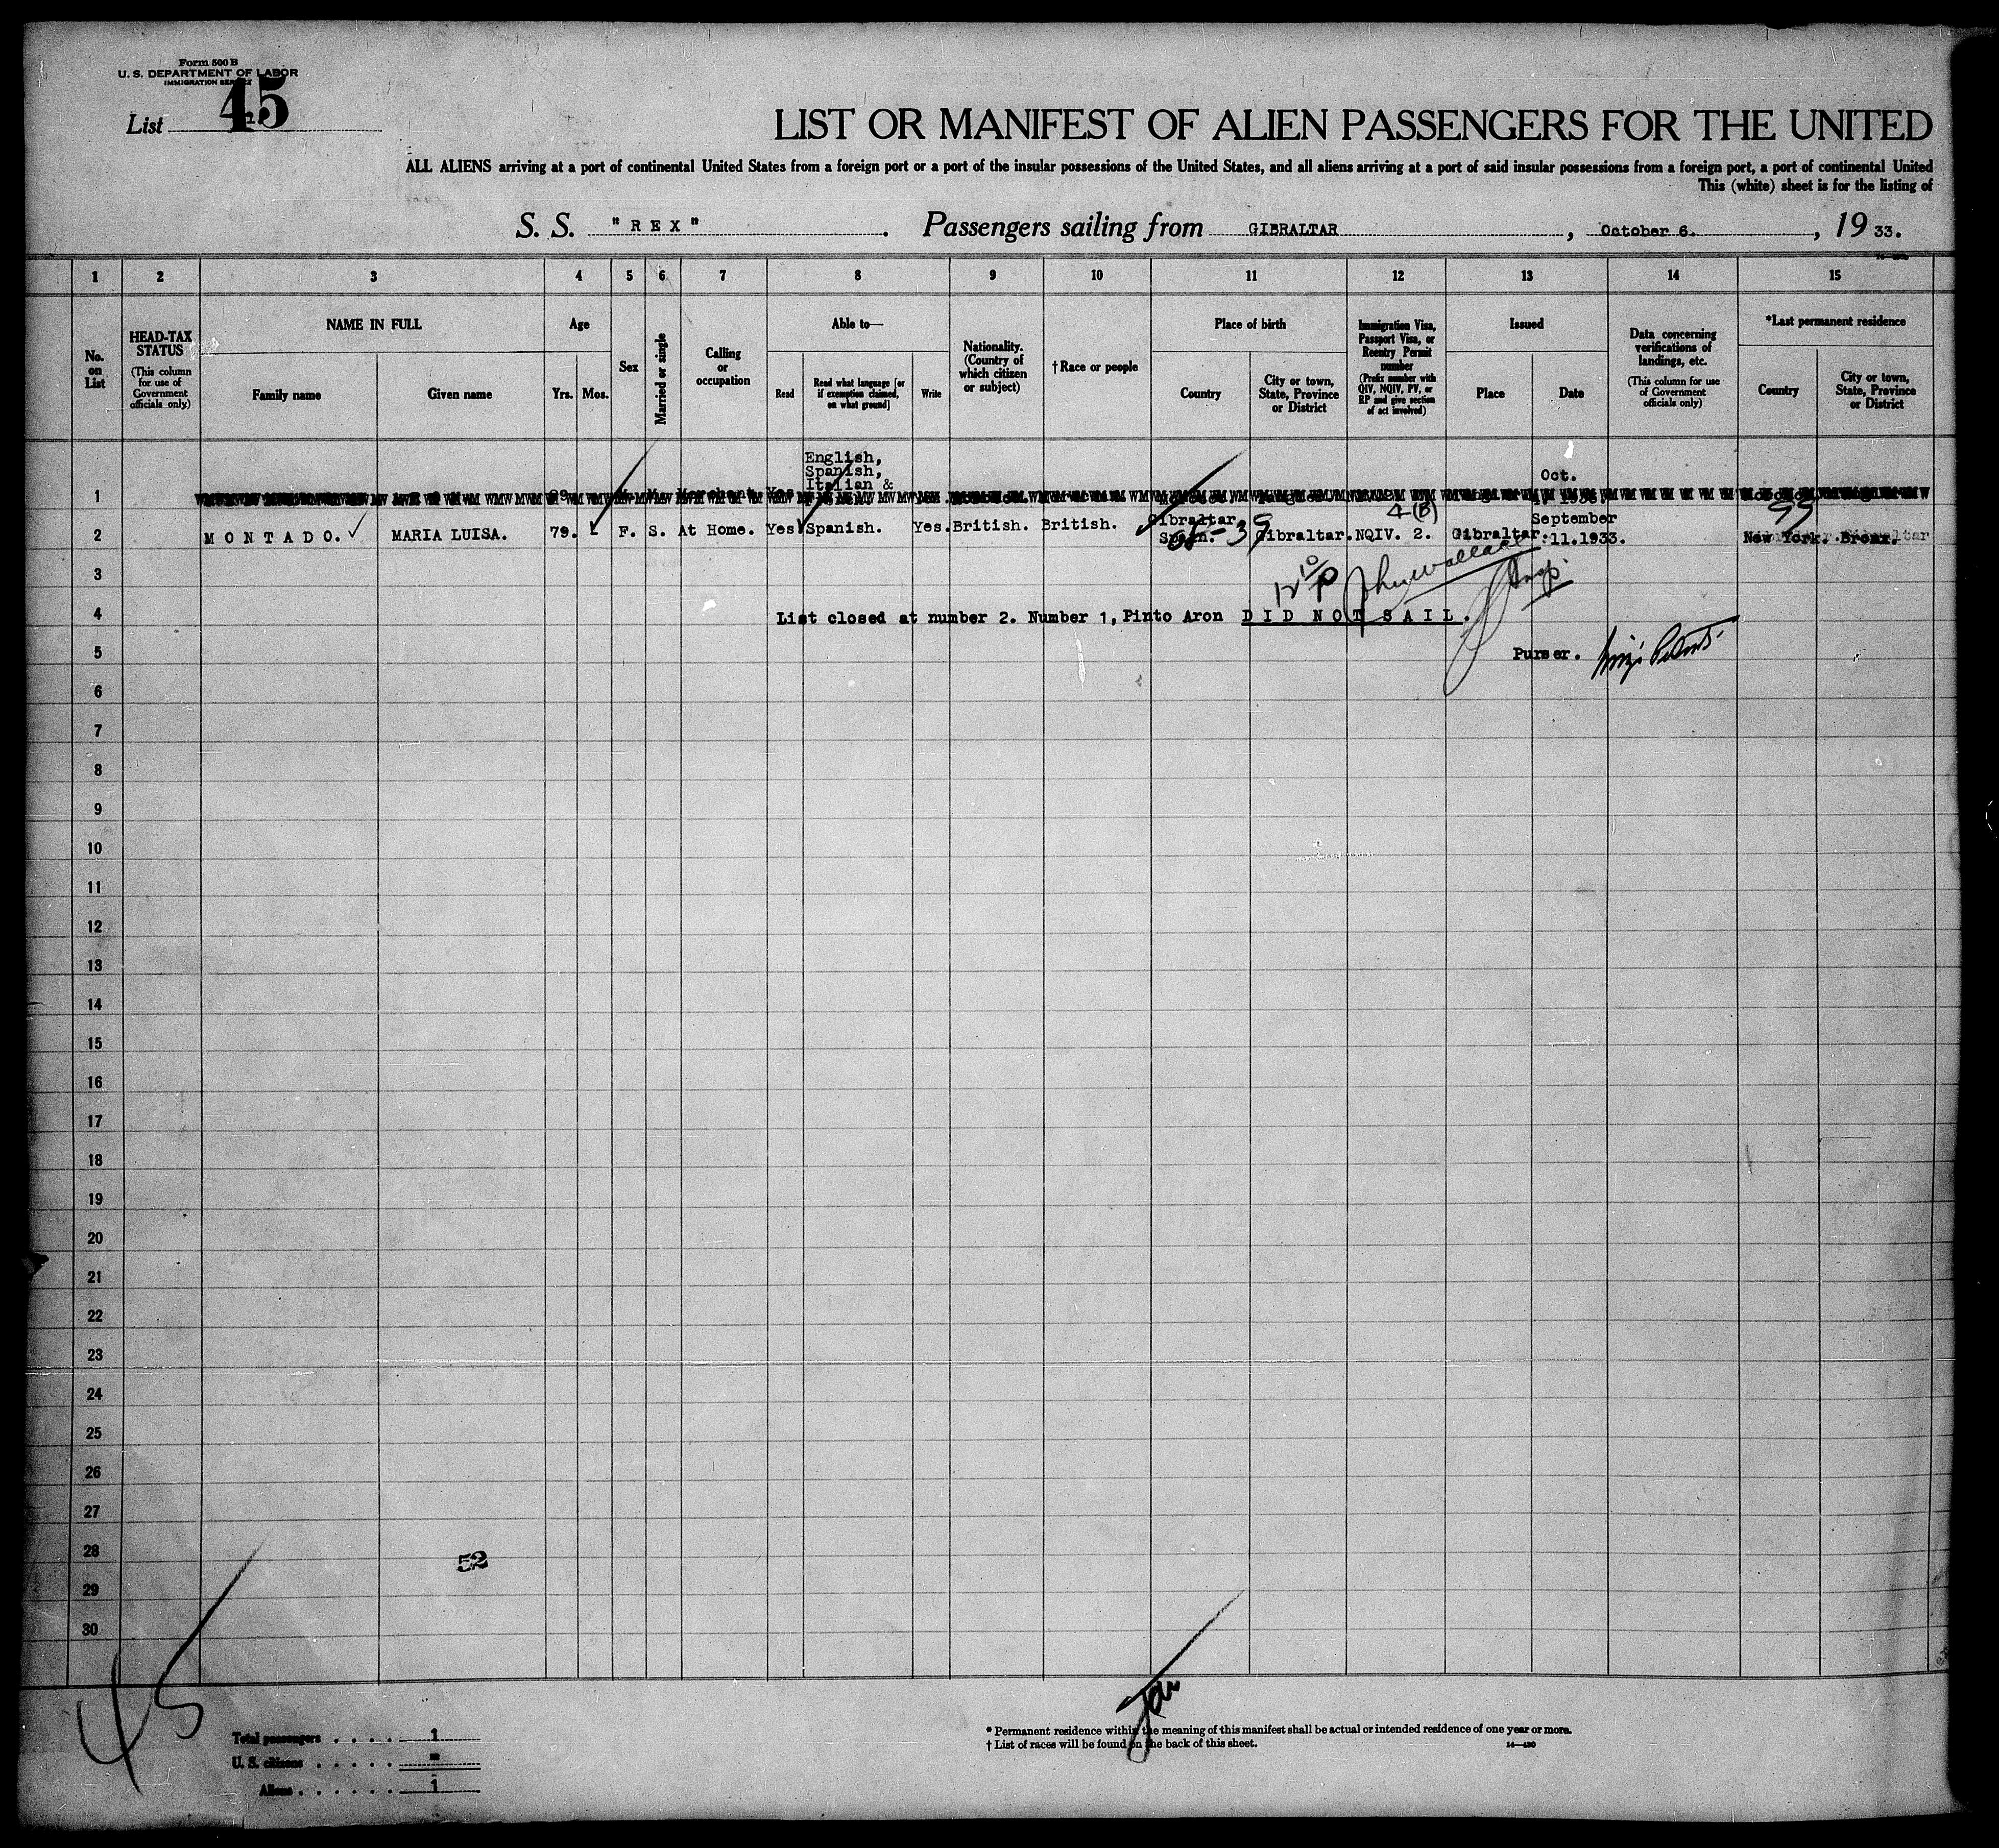 Form 500 B
U. S. DEPARTMENT OF LABOR
IMMIGRATION SERVICE
List 45
LIST OR MANIFEST OF ALIEN PASSENGERS FOR THE UNITED
ALL ALIENS arriving at a port of continental United States from a foreign port or a port of the insular possessions of the United States, and all aliens arriving at a port of said insular possessions from a foreign port, a port of continental United
This (white) sheet is for the listing of
S. S. "REX". Passengers sailing from GIBRALTAR, October 6., 19 33.
1 2 3 4 5 6 7 8 9 10 11 12 13 14 15
No. on List
HEAD-TAX STATUS (This column for use of Government officials only)
NAME IN FULL
Family name Given name
Age
Yrs. Mos.
Sex
Married or single
Calling or occupation
Able to—
Read Read what language [or if exemption claimed, on what ground] Write
Nationality. (Country of which citizen or subject)
† Race or people
Place of birth
Country City or town, State, Province or District
Immigration Visa, Passport Visa, or Reentry Permit number (Prefix number with QIV, NQIV, PV, or RP and give section of act involved)
Issued
Place Date
Data concerning verifications of landings, etc. (This column for use of Government officials only)
*Last permanent residence
Country City or town, State, Province or District
English,
Spanish,
Italian & Oct.
1
4(B) 99
2 MONTADO. MARIA LUISA. 79. F. S. At Home. Yes Spanish. Yes. British. British. Gibraltar Spain. Gibraltar. NQIV. 2. Gibraltar. September 11.1933. New York. Bronx.
3
12 10/P John Wallace Insp.
4 List closed at number 2. Number 1, Pinto Aron DID NOT SAIL.
5 Purser.
6
7
8
9
10
11
12
13
14
15
16
17
18
19
20
21
22
23
24
25
26
27
28 52
29
30
45
Total passengers . . . . 1
U. S. citizens . . . . . -
Aliens . . . . . . 1
* Permanent residence within the meaning of this manifest shall be actual or intended residence of one year or more.
† List of races will be found on the back of this sheet.
14—430